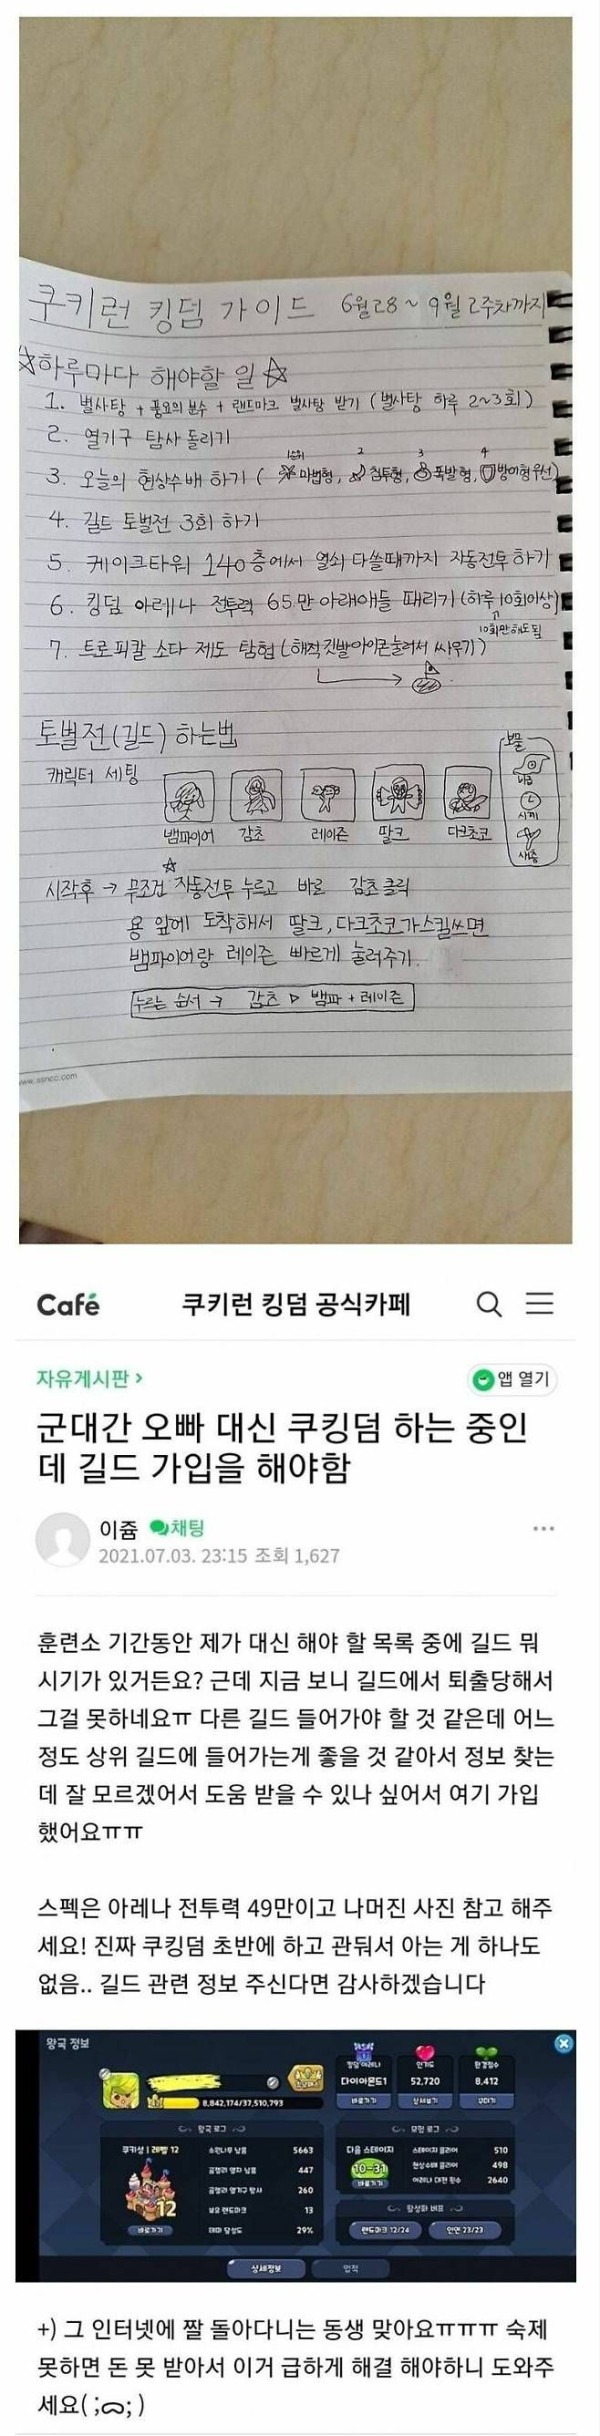 쿠키런 킹덤 가이드 6월28 ~ 9월 2주차까지
☆하루마다 해야할 일☆
1. 별사탕 + 풍요의 분수 + 랜드마크 별사탕 받기 (별사탕 하루 2~3회)
2. 열기구 탐사 돌리기
1순위 2 3 4
3. 오늘의 현상수배 하기 ( 마법형, 침투형, 폭발형, 방어형 우선)
4. 길드 토벌전 3회 하기
5. 케이크타워 140층에서 열쇠 다쓸때까지 자동전투 하기
6. 킹덤 아레나 전투력 65만 아래애들 때리기 (하루 10회이상)
10회만 해도 됨
7. 트로피칼 소다 제도 탐험 (해적깃발아이콘눌러서 싸우기)
토벌전(길드) 하는법
보물
캐릭터 세팅
시계
뱀파이어 감초 레이즌 딸크 다크초코
시작후 → 무조건 자동전투 누르고 바로 감초 클릭
용 앞에 도착해서 딸크, 다크초코가스킬쓰면
뱀파이어랑 레이즌 빠르게 눌러주기.
누르는 순서 → 감초 ▷ 뱀파 + 레이즌
www.asncc.com
Café 쿠키런 킹덤 공식카페
자유게시판 >
앱 열기
군대간 오빠 대신 쿠킹덤 하는 중인
데 길드 가입을 해야함
이쥼 채팅
2021.07.03. 23:15 조회 1,627
훈련소 기간동안 제가 대신 해야 할 목록 중에 길드 뭐
시기가 있거든요? 근데 지금 보니 길드에서 퇴출당해서
그걸 못하네요ㅠ 다른 길드 들어가야 할 것 같은데 어느
정도 상위 길드에 들어가는게 좋을 것 같아서 정보 찾는
데 잘 모르겠어서 도움 받을 수 있나 싶어서 여기 가입
했어요ㅠㅠ
스펙은 아레나 전투력 49만이고 나머진 사진 참고 해주
세요! 진짜 쿠킹덤 초반에 하고 관둬서 아는 게 하나도
없음.. 길드 관련 정보 주신다면 감사하겠습니다
왕국 정보
킹덤 아레나 인기도 환경점수
다이아몬드1 52,720 8,412
바로가기 상세보기 꾸미기
8,842,174/37,510,793
왕국 로그
쿠키성 | 레벨 12
12
바로가기
소원나무 납품 5663
곰젤리 열차 납품 447
곰젤리 열기구 탐사 260
보유 랜드마크 13
테마 달성도 29%
모험 로그
다음 스테이지
10-31
바로가기
스테이지 클리어 510
현상수배 클리어 498
아레나 대전 횟수 2640
활성화 버프
랜드마크 12/24 인연 23/23
상세정보 업적
+) 그 인터넷에 짤 돌아다니는 동생 맞아요ㅠㅠㅠ 숙제
못하면 돈 못 받아서 이거 급하게 해결 해야하니 도와주
세요( ;ᯅ; )